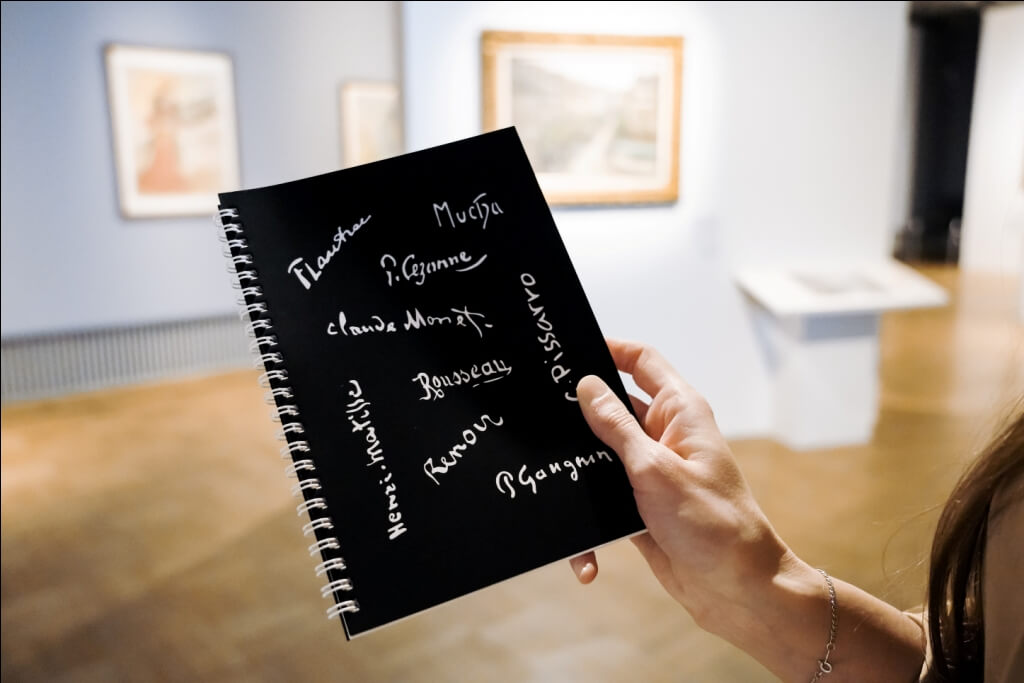 TLautrec
Mucha
P. Cezanne
Claude Monet.
C. Pissarro
Rousseau
Henri. Matisse
Renoir
P Gauguin